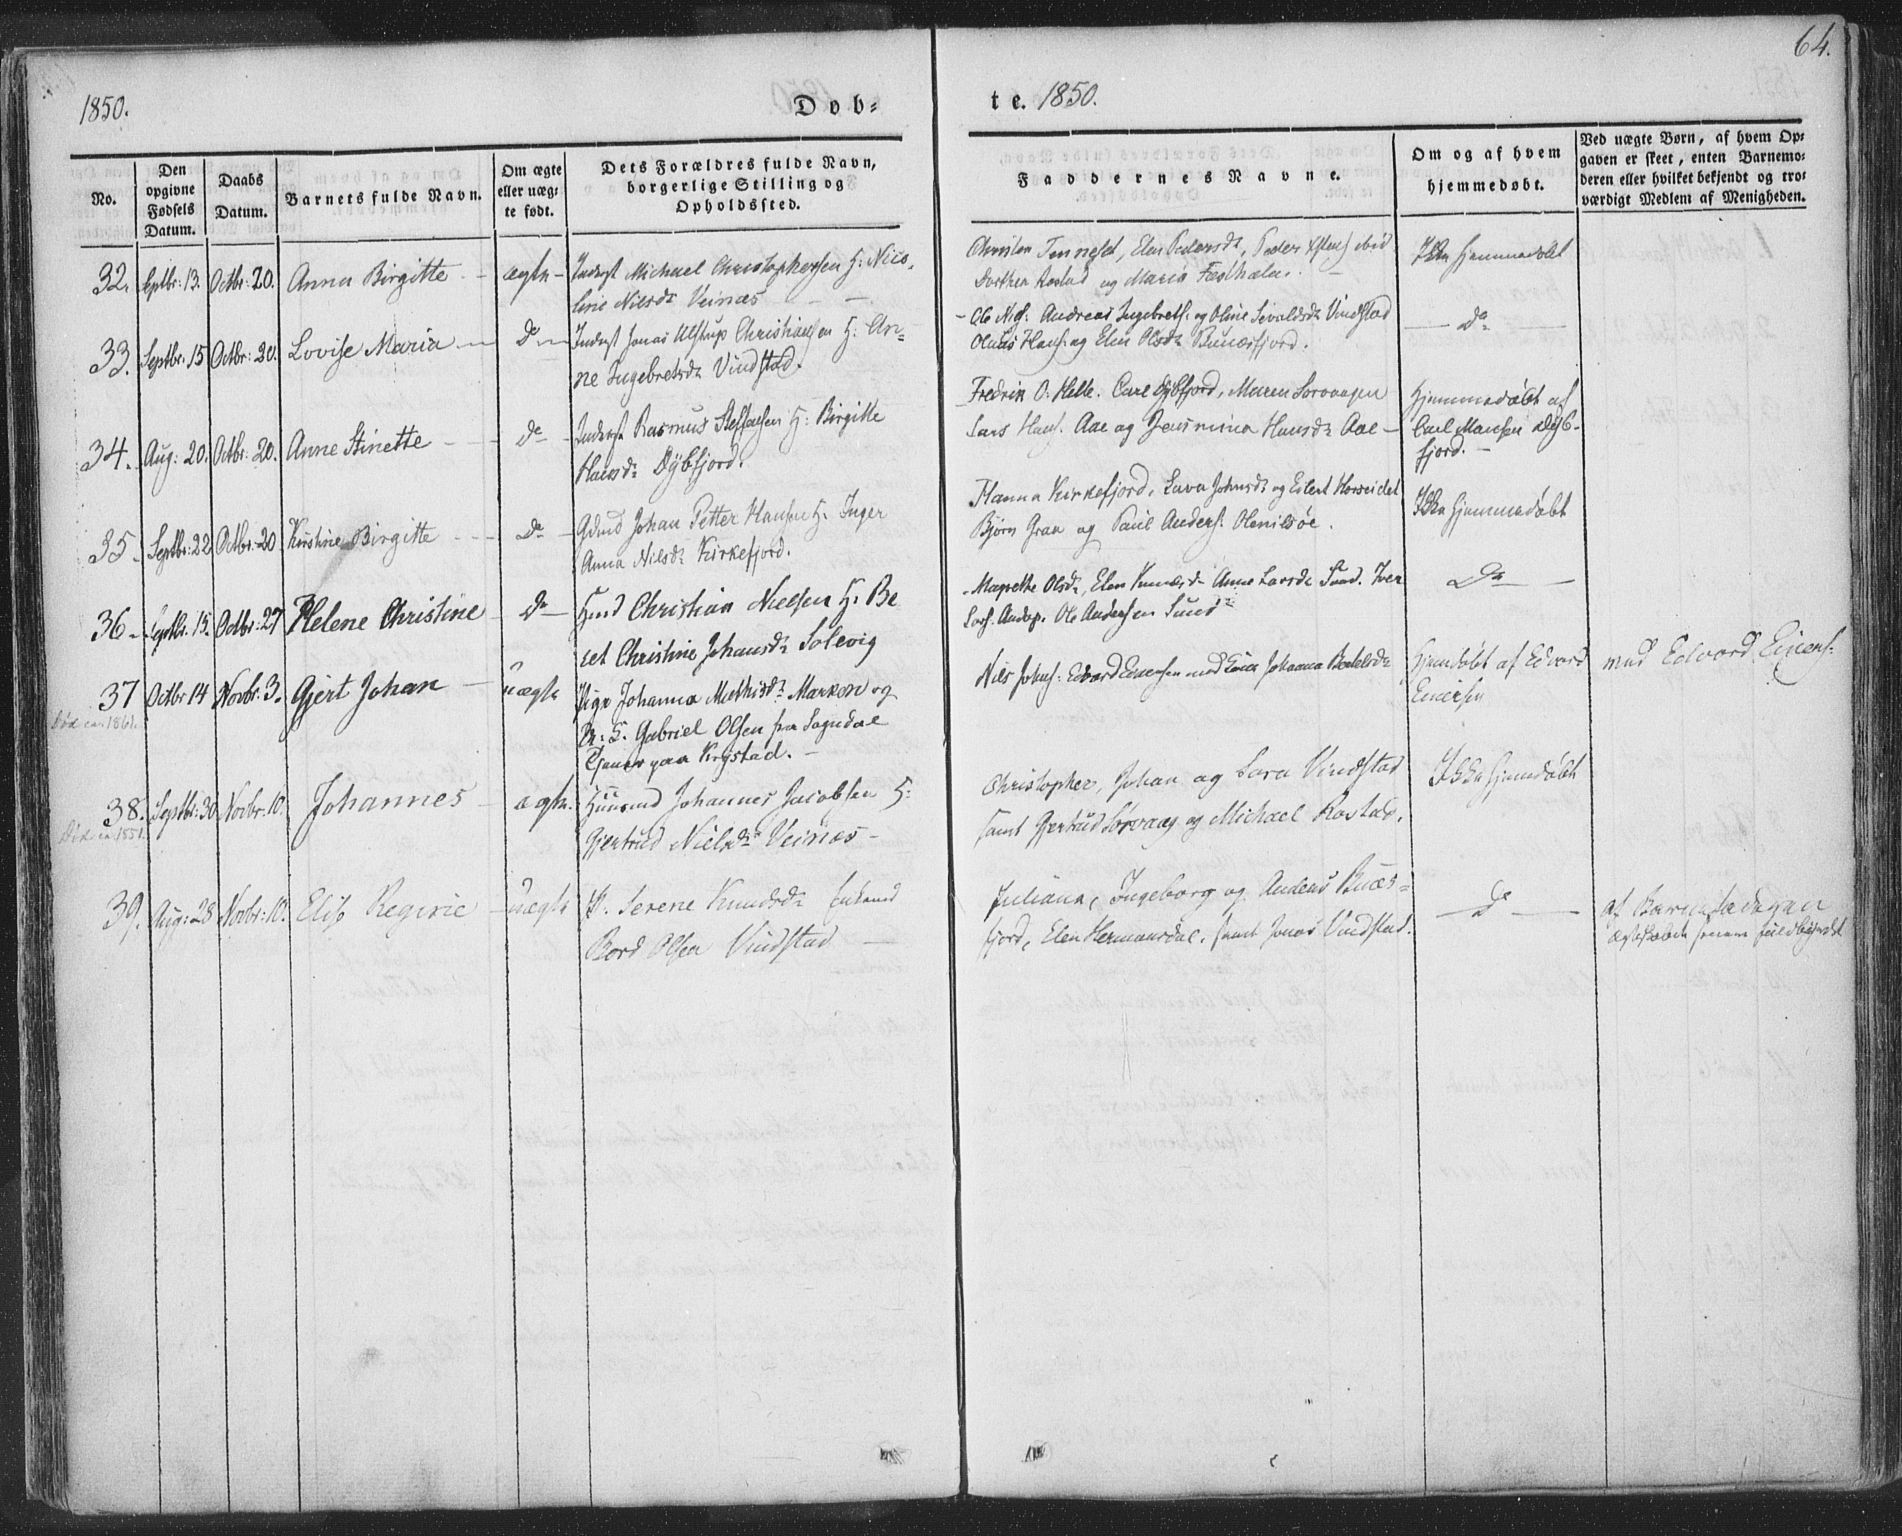 64.
1850.
Døb=
te. 1850.
No.
Den
opgivne
Fødsels
Datum.
Daabs
Datum.
Barnets fulde Navn.
Om ægte
eller uæg-
te født.
Dets Forældres fulde Navn,
borgerlige Stilling og
Opholdssted.
Faddernes Navne.
Om og af hvem
hjemmedøbt.
Ved uægte Børn, af hvem Op-
gaven er skeet, enten Barnemo-
deren eller hvilket bekjendt og tro-
værdigt Medlem af Menigheden.
32. Septbr: 13. Octbr: 20. Anna Birgitte ægte Inderst Michael Christophersen H: Nico-
line Nilsdr Veinæs
Elen Pedersdr, Peder
Dorthea Rostad og Maria
Ikke hjemmedøbt
33. Septbr: 15 Octbr: 20. Lovise Maria Do Inderst Jonas Ulstrup Christiansen H: An-
ne Ingebretsdr Vindstad.
Andreas Ingebrets: og Oline Sivaldsdr Vindstad
Hans: og Elen Olsdr Bunæsfjord.
Do
34. Aug: 20. Octbr: 20. Anne Stinette Do Inderst Rasmus Steffensen H: Birgitte
Hansdr Dybfjord.
Fredrik O: Helle. Carl Dybfjord, Maren Sørvaagen
Lars Hans: Aae og Jensmina Hansdr Aae
Hjemmedøbt af
Carl Hansen Dyb-
fjord.
35. Septbr: 22 Octbr: 20 Kirstine Birgitte Do Johan Petter Hansen H: Inger
Anna Nilsdr Kirkefjord.
Hanna Kirkefjord, Johnsdr og Eilert Horseidet
Bjørn Graa og Paul Anders: Olenilsøe.
Ikke hjemmedøbt
36 Septbr: 15. Octbr: 27 Helene Christine Do Christian Nielsen H: Be
ret Christine Johansdr Solevig
Magrethe Olsdr, Elen Anne Larsdr Sund. Iver
Lars: Ole Andersen Sund
Do
37 Octbr 14 Novbr: 3. Gjert Johan uægte Pige Johanna Mathisdr Marken og
U: K. Gabriel Olsen fra Sogndal
Tjener paa Krystad.
Død ca. 1861.
Nils Johns: Edvard Einersen Johanna
Hjemdøbt af Edvard
Einersen
med Edvard Einers:
38. Septbr: 30 Novbr: 10. Johannes ægte. Huusmd Johannes Jacobsen H:
Gjertrud Nielsdr Veinæs
Død ca. 1851.
Christopher, Johan og Sara Vindstad
samt Gjertrud Sørvaag og Michael Rostad.
Ikke hjemdøbt
39. Aug: 28 Novbr: 10. Elise Regine uægte P. Serene Knudsdr
Bord Olsen Vindstad
Juliana, Ingeborg og Anders Bunæs-
fjord, Elen Hermansdal, samt Jonas Vindstad.
Do
af Barnefaderen
Ægteskabet senere fuldbyrdet